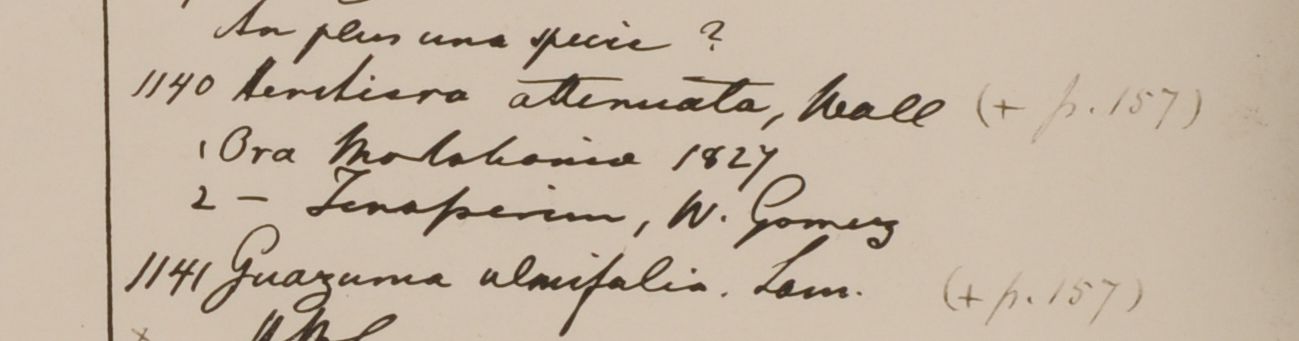 An plus una specie ?
1140 Heritiera attenuata, Wall (+ p. 157)
1 Ora Moalmeina 1827
2 – Tenasserim, W. Gomez
1141 Guazuma ulmifolia. Lam. (+ p. 157)